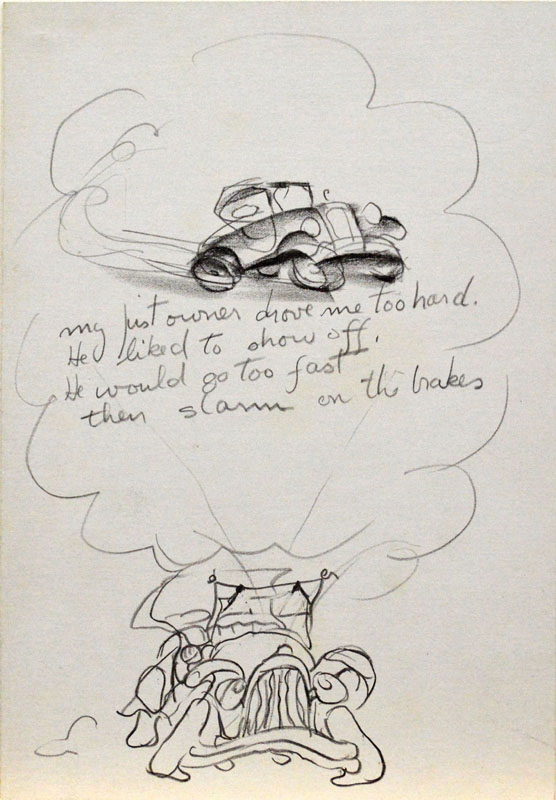 my first owner drove me too hard.
He liked to show off.
He would go too fast
then slam on the brakes